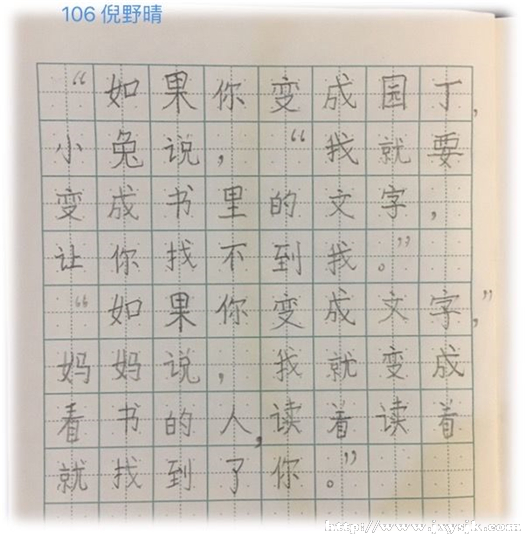 106 倪野晴
“如果你变成园丁,
小兔说，“我就要
变成书里的文字，
让你找不到我。”
“如果你变成文字,”
妈妈说，我就变成
看书的人,读着读着
就找到了你。”
http://www.jxysjk.com